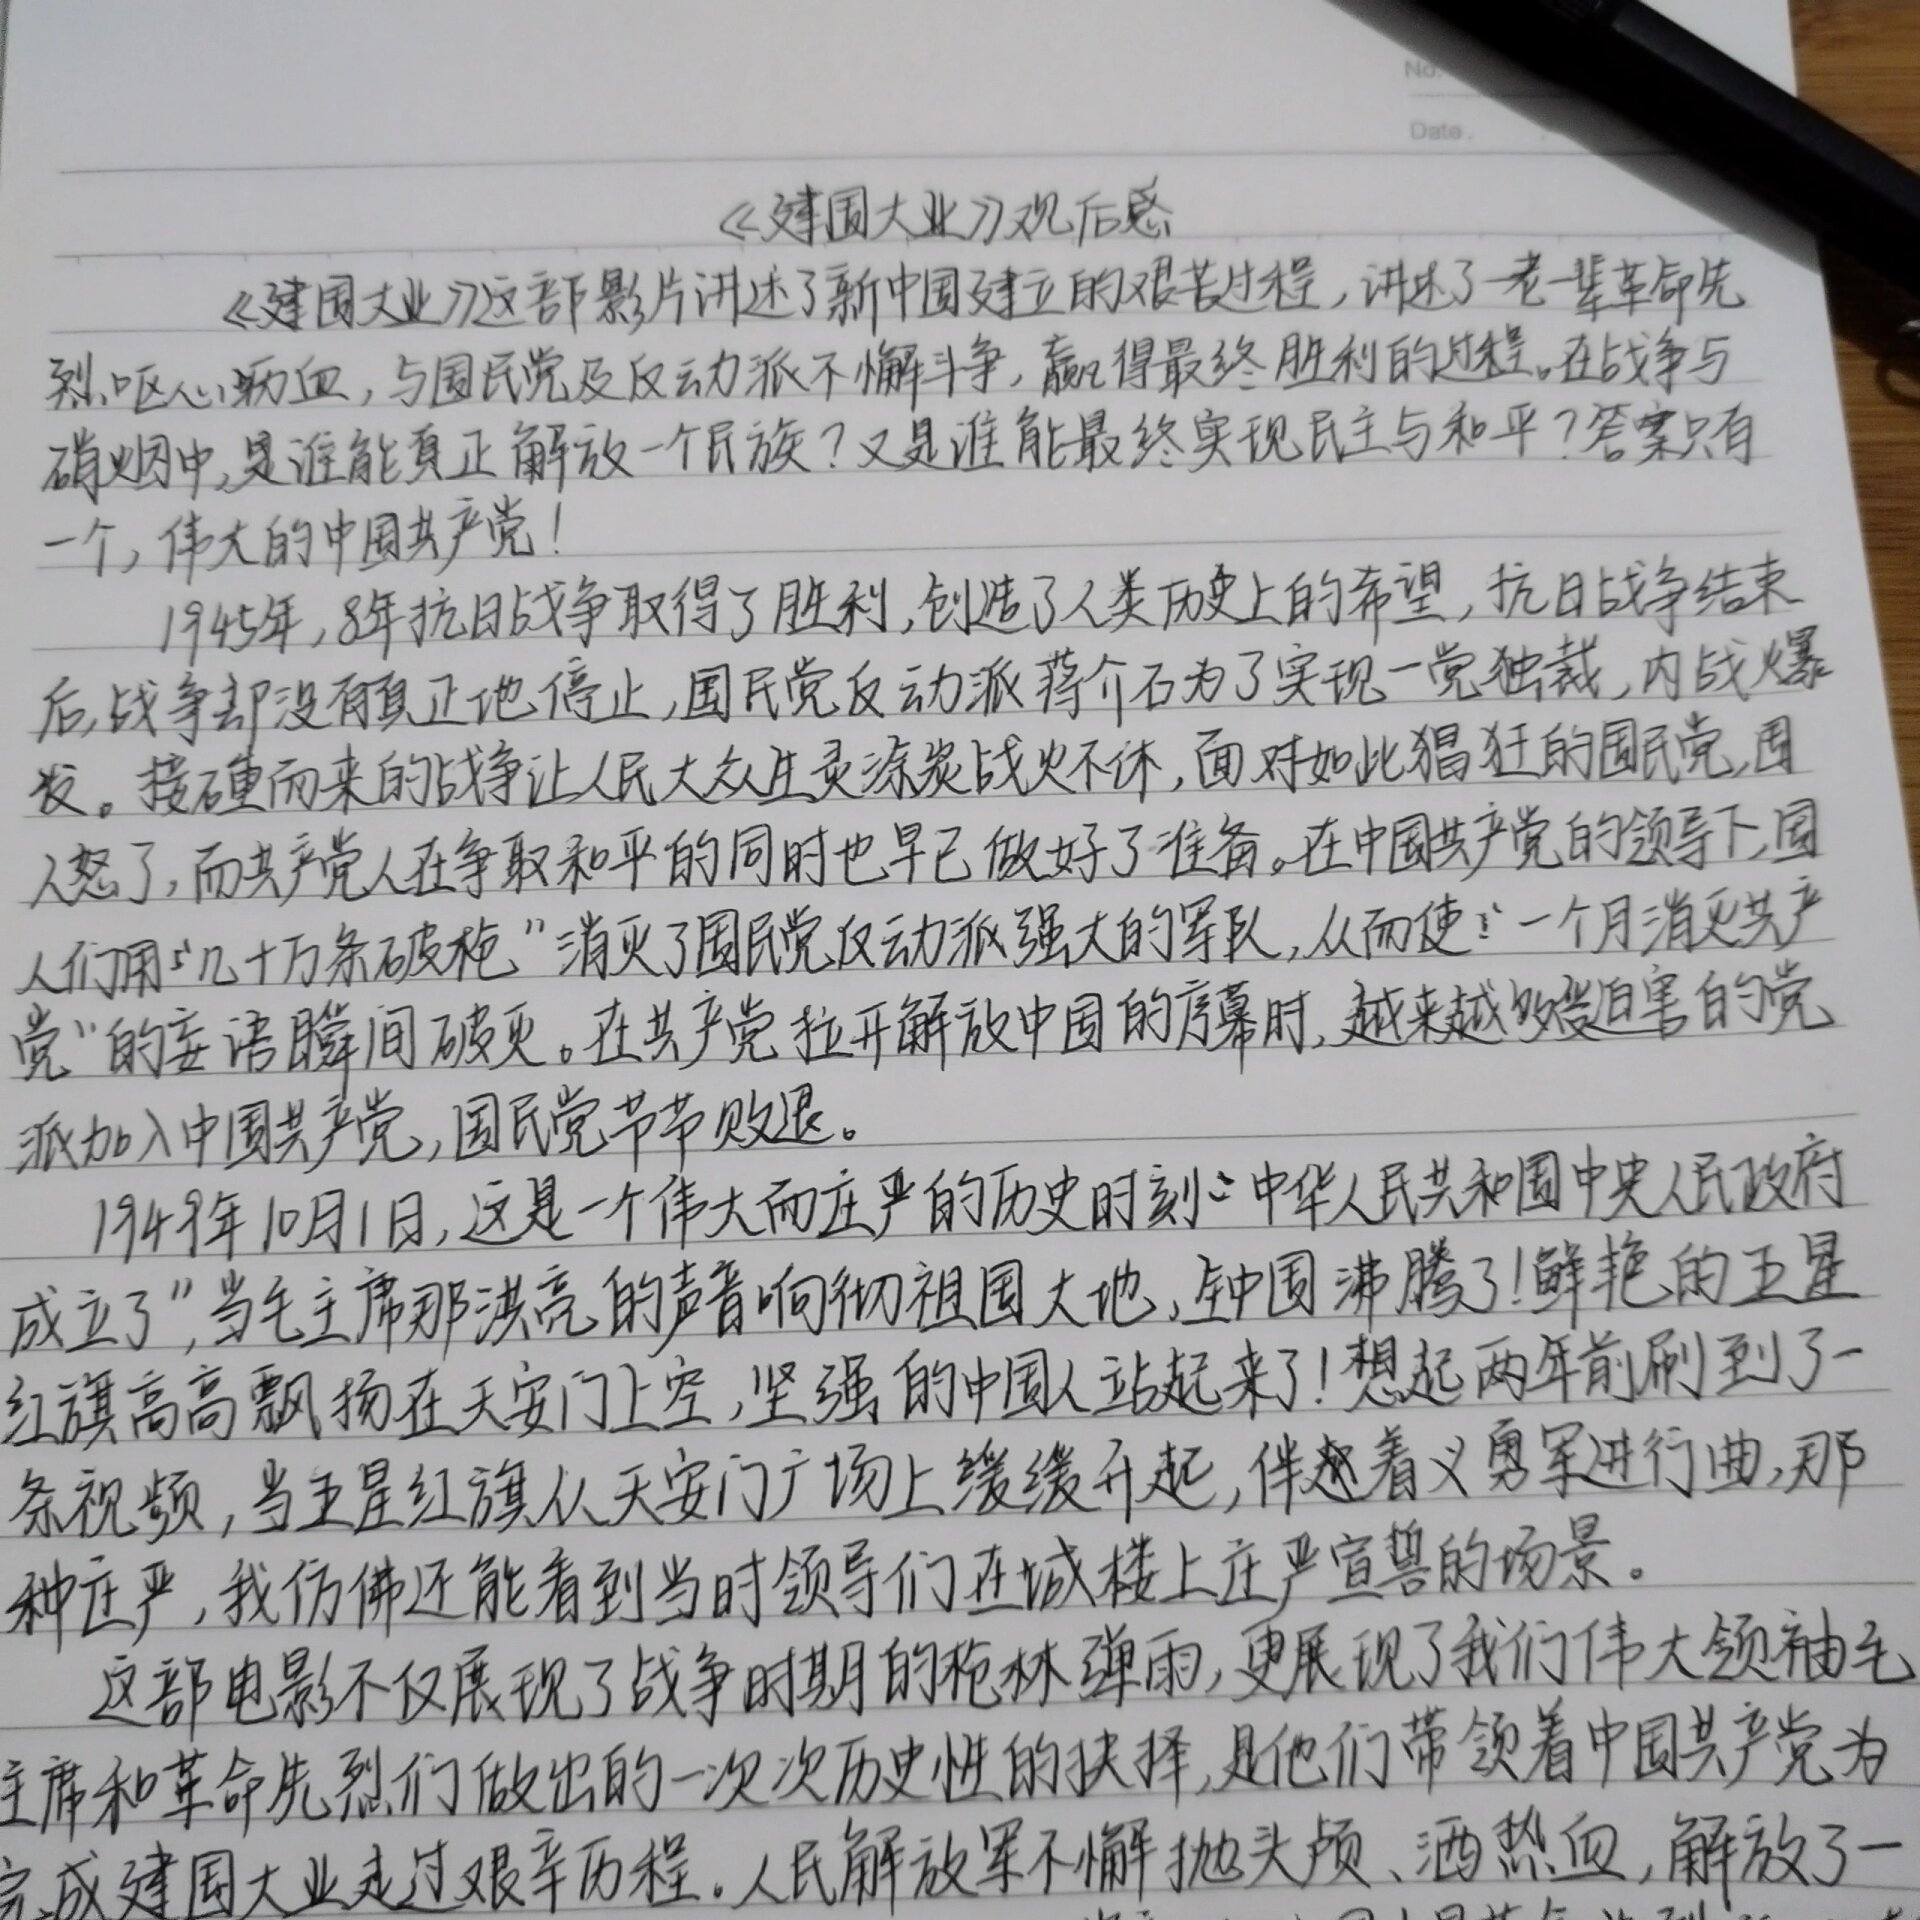 No.
Date.
《建国大业》观后感
《建国大业》这部影片讲述了新中国建立的艰苦过程,讲述了一老一辈革命先
烈呕心呖血,与国民党及反动派不懈斗争,赢得最终胜利的过程。在战争与
硝烟中,是谁能真正解放一个民族?又是谁能最终实现民主与和平?答案只有
一个,伟大的中国共产党!
1945年,8年抗日战争取得了胜利,创造了人类历史上的希望,抗日战争结束
后,战争却没有真正地停止,国民党反动派蒋介石为了实现一党独裁,内战爆
发。接踵而来的战争让人民大众生灵涂炭战火不休,面对如此猖狂的国民党,国
人怒了,而共产党人在争取和平的同时也早已做好了准备。在中国共产党的领导下,国
人们用“几十万条破枪”消灭了国民党反动派强大的军队,从而使“一个月消灭共产
党”的妄语瞬间破灭。在共产党拉开解放中国的序幕时,越来越多受迫害的党
派加入中国共产党,国民党节节败退。
1949年10月1日,这是一个伟大而庄严的历史时刻“中华人民共和国中央人民政府
成立了”,当毛主席那洪亮的声音响彻祖国大地,全中国沸腾了!鲜艳的五星
红旗高高飘扬在天安门上空,坚强的中国人站起来了!想起两年前刷到了一
条视频,当五星红旗从天安门广场上缓缓升起,伴着义勇军进行曲,那
种庄严,我仿佛还能看到当时领导们在城楼上庄严宣誓的场景。
这部电影不仅展现了战争时期的枪林弹雨,更展现了我们伟大领袖毛
主席和革命先烈们做出的一次次历史性的抉择,是他们带领着中国共产党为
完成建国大业走过艰辛历程。人民解放军不懈抛头颅、洒热血,解放了一